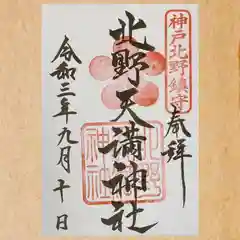 神戸北野鎮守
奉拝
北野天満神社
北野
神社
令和三年九月十日